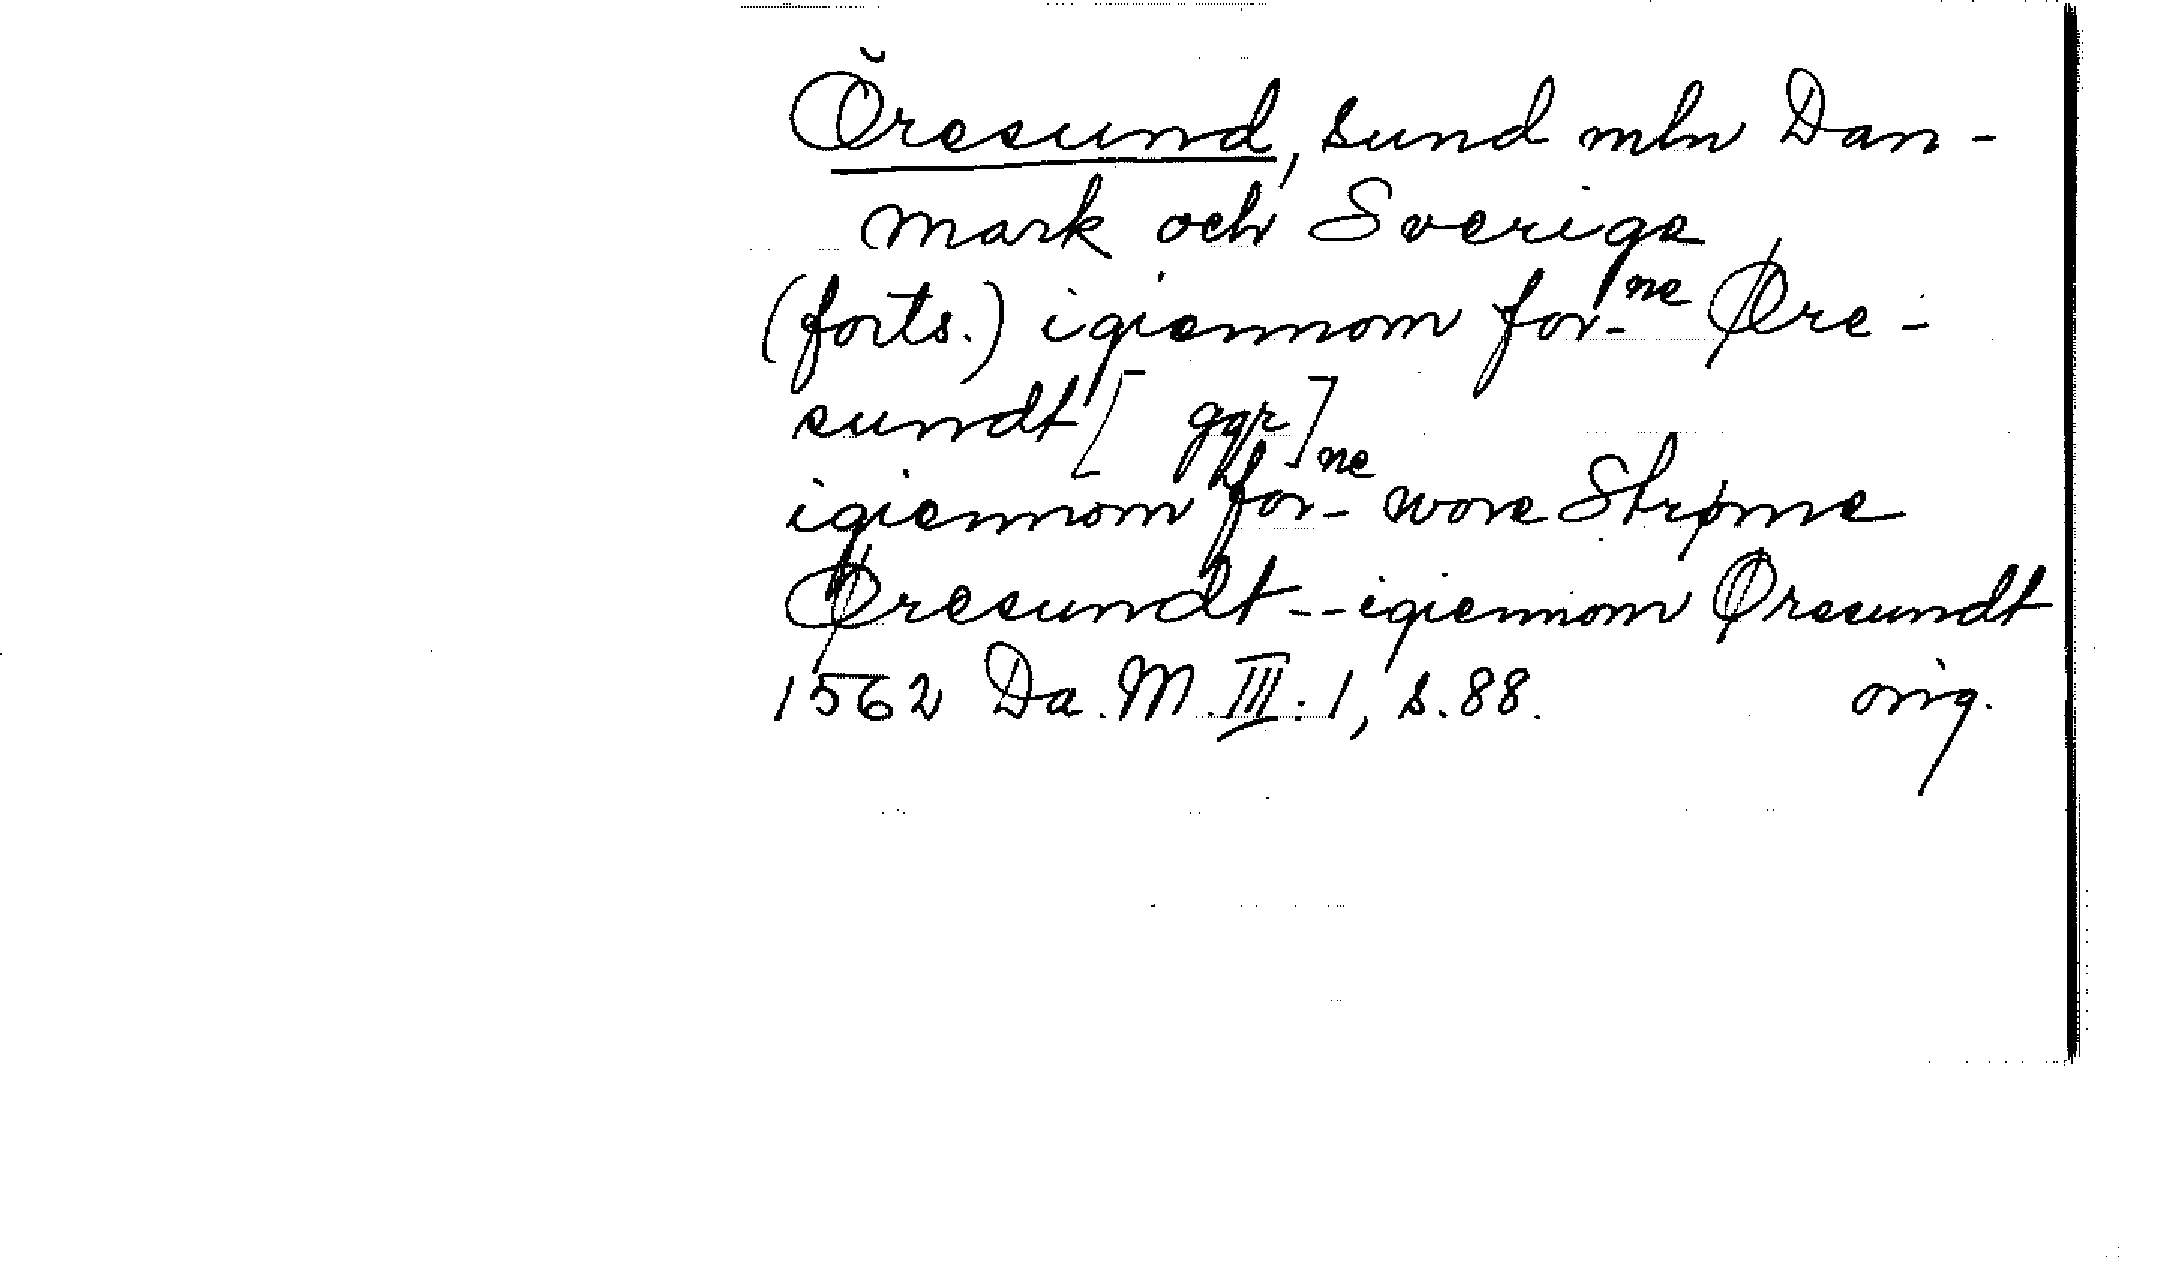 Öresund, sund mln Dan-
mark och Sverige
(forts.) igiennom for-ne Øre-
sundt [ ggr]
igiennom for-ne wore Strøme
Øresundt -- igiennom Øresundt
1562 Da. M. III. 1, s. 88. orig.